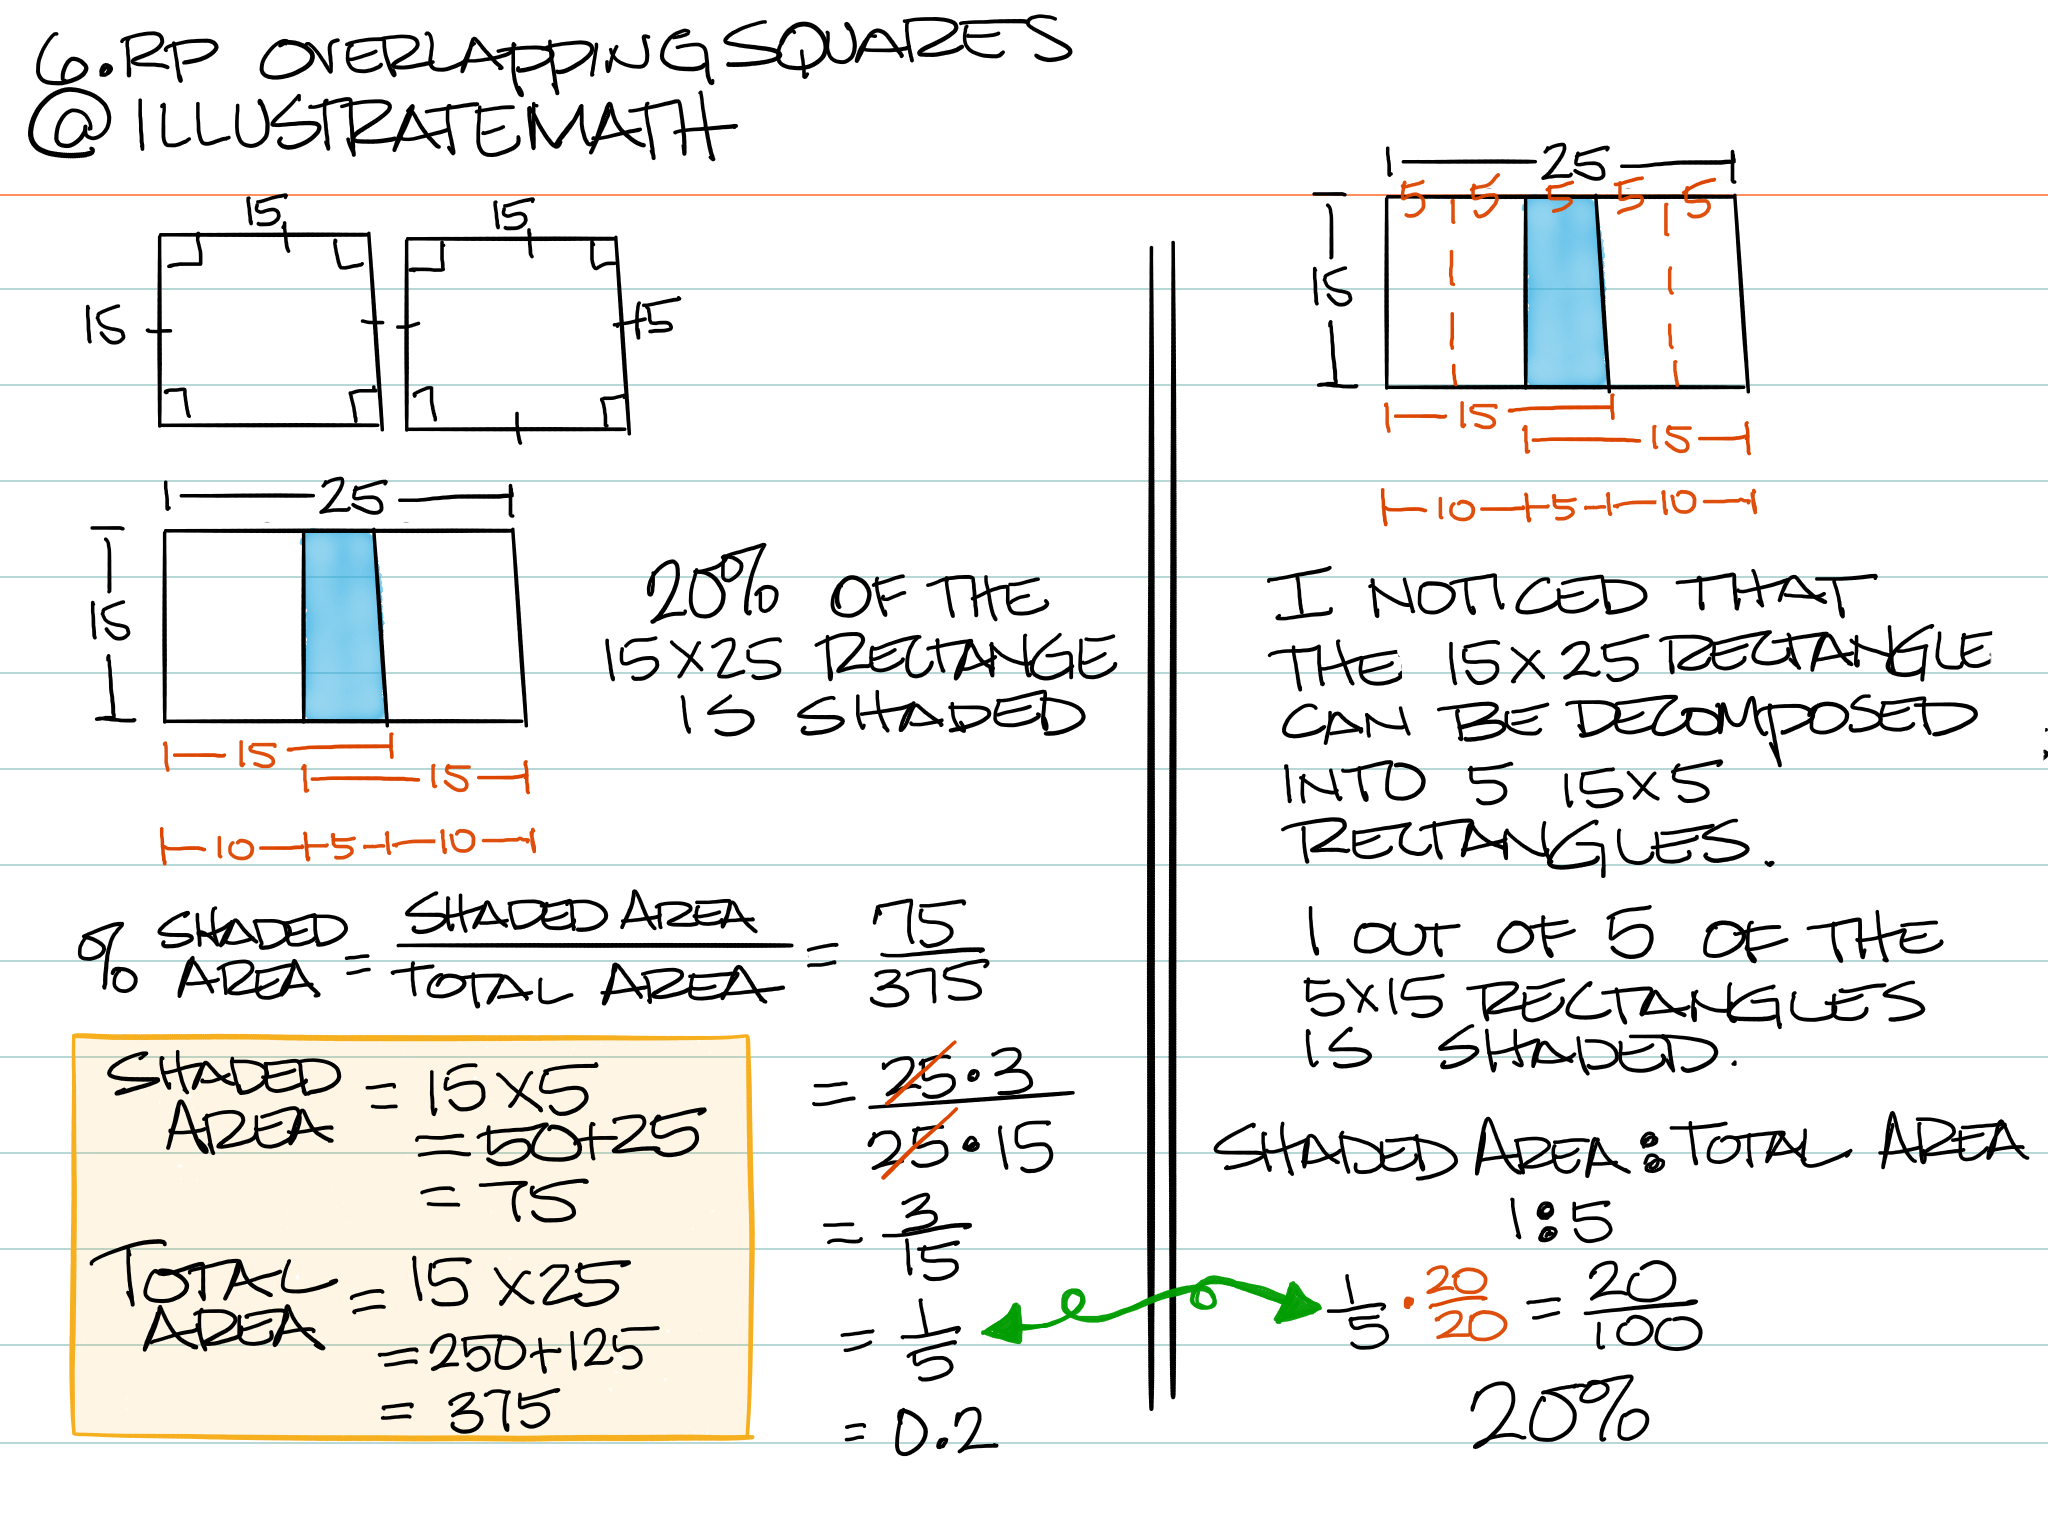 6.RP OVERLAPPING SQUARES
@ILLUSTRATEMATH
15 15
15 15
25
15
15
15
10 5 10
20% OF THE
15X25 RECTANGE
IS SHADED
% SHADED AREA = SHADED AREA / TOTAL AREA = 75/375
SHADED AREA = 15X5
= 50+25
= 75
TOTAL AREA = 15X25
= 250+125
= 375
= 25•3 / 25•15
= 3/15
= 1/5
= 0.2
25
5 5 5 5 5
15
15
15
10 5 10
I NOTICED THAT
THE 15X25 RECTANGLE
CAN BE DECOMPOSED
INTO 5 15X5
RECTANGLES.
1 OUT OF 5 OF THE
5X15 RECTANGLES
IS SHADED.
SHADED AREA : TOTAL AREA
1:5
1/5 • 20/20 = 20/100
20%